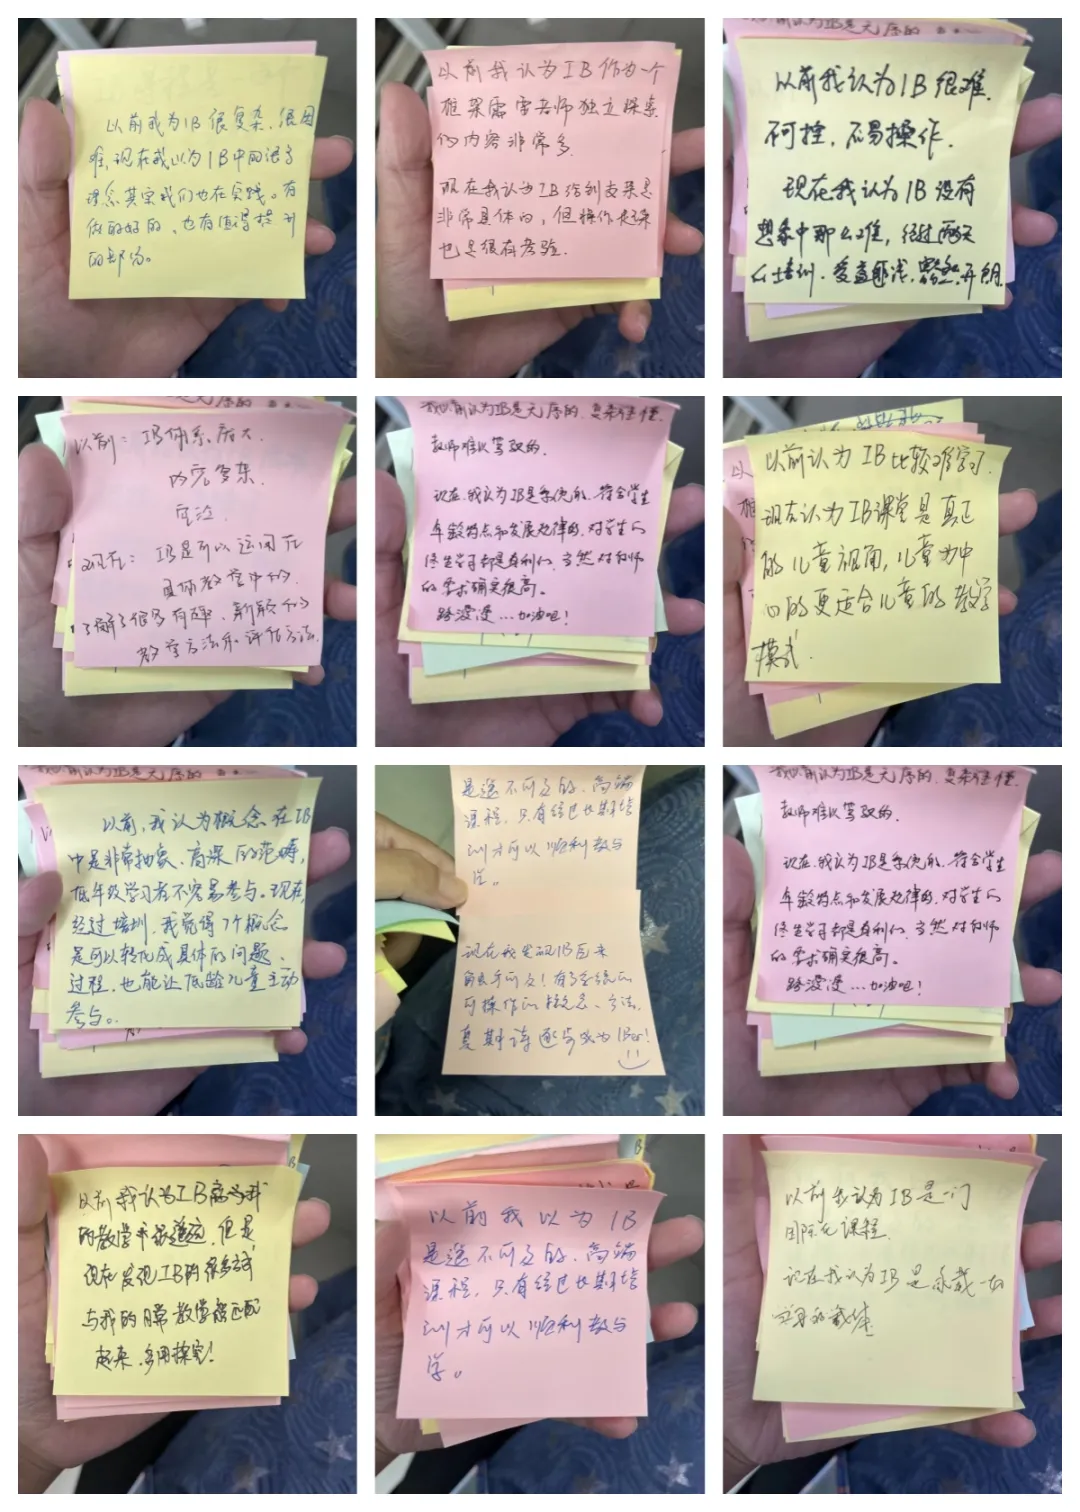 以前我为IB很复杂、很困
难,现在我认为IB中的很多
理念其实我们也在实践。有
做的好的、也有值得提升
的部分。
以前我认为IB作为一个
框架需要老师独立探索
的内容非常多.
现在我认为IB给到支架是
非常具体的,但操作起来
也是很有考验.
以前我认为IB很难.
不可控,不易操作.
现在我认为IB没有
想象中那么难,经过两天
的培训.受益匪浅,豁然开朗.
以前: IB体系庞大.
内容复杂.
现在: IB是可以运用在
具体教学中的.
了解了很多有趣、新颖的
教学方法和评价方法.
我以前认为IB是无序的.
教师难以驾驭的.
现在.我认为IB是系统的.符合学生
年龄特点和发展规律的,对学生的
终生学习都是有利的,当然对教师
的要求确实提高。
路漫漫…加油吧!
以前认为IB比较难学习.
现在认为IB课堂是真正
的儿童视角,儿童为中
心的更适合儿童的教学
模式.
以前,我认为概念在IB
中是非常抽象、高深的范畴,
低年级学习者不容易参与。现在,
经过培训,我觉得7个概念
是可以转化成具体的问题、
过程,也能让低龄儿童主动
参与。
是遥不可及的、高端
课程,只有经过长期培
训才可以顺利教与
学。
现在我发现IB原来
触手可及!有了系统的
可操作的概念、方法,
更期待逐步成为IBer!
我以前认为IB是无序的.
教师难以驾驭的.
现在.我认为IB是系统的.符合学生
年龄特点和发展规律的,对学生的
终生学习都是有利的,当然对教师
的要求确实提高。
路漫漫…加油吧!
以前我认为IB离我
的教学很遥远,但是
现在发现IB的很多
与我的日常教学能匹配
起来,多用探究!
以前我以为IB
是遥不可及的、高端
课程,只有经过长期培
训才可以顺利教与
学。
以前我认为IB是一门
国际化课程.
现在我认为IB是承载一切
学习的载体